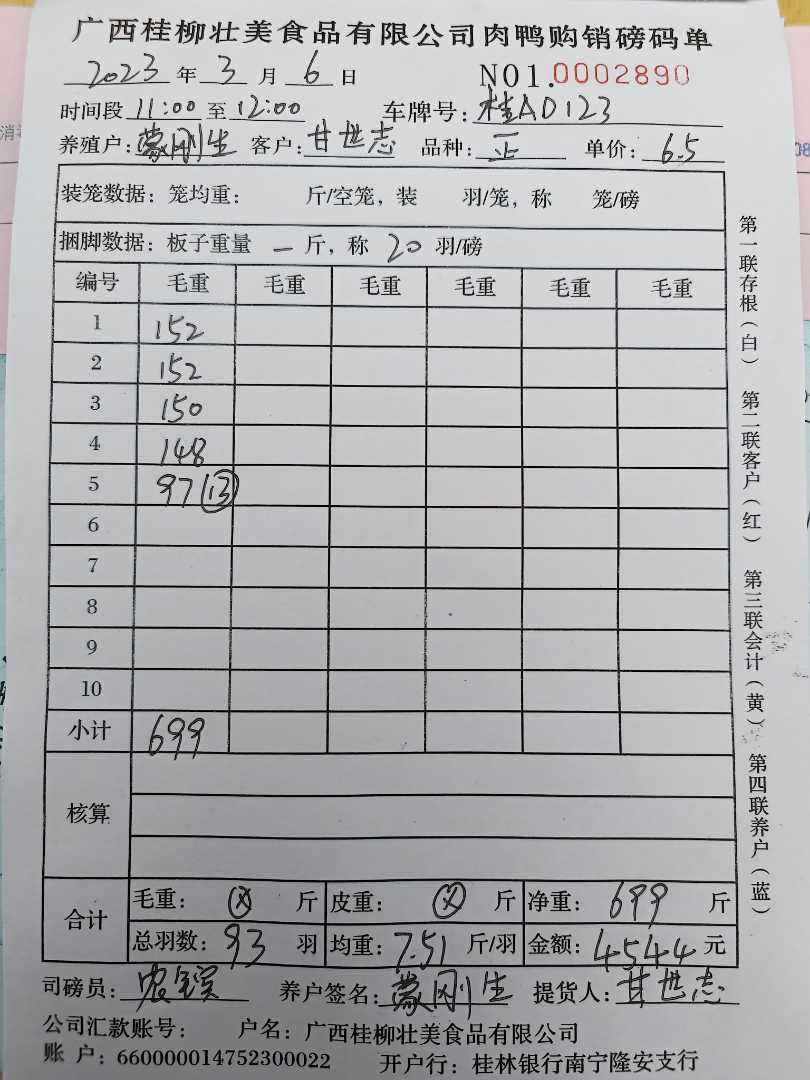 广西桂柳壮美食品有限公司肉鸭购销磅码单
2023 年 3 月 6 日 NO1.0002890
时间段 11:00 至 12:00 车牌号: 桂AD123
养殖户: 蒙刚生 客户: 甘世志 品种: 正 单价: 6.5
装笼数据: 笼均重: 斤/空笼, 装 羽/笼, 称 笼/磅
捆脚数据: 板子重量 一 斤, 称 20 羽/磅
编号 毛重 毛重 毛重 毛重 毛重 毛重
1 152
2 152
3 150
4 148
5 97 (13)
6
7
8
9
10
小计 699
核算
合计
毛重: ⊗ 斤 皮重: ⊗ 斤 净重: 699 斤
总羽数: 93 羽 均重: 7.51 斤/羽 金额: 4544 元
司磅员: 养户签名: 蒙刚生 提货人: 甘世志
公司汇款账号: 户名: 广西桂柳壮美食品有限公司
账 户: 660000014752300022 开户行: 桂林银行南宁隆安支行
第一联存根(白) 第二联客户(红) 第三联会计(黄) 第四联养户(蓝)